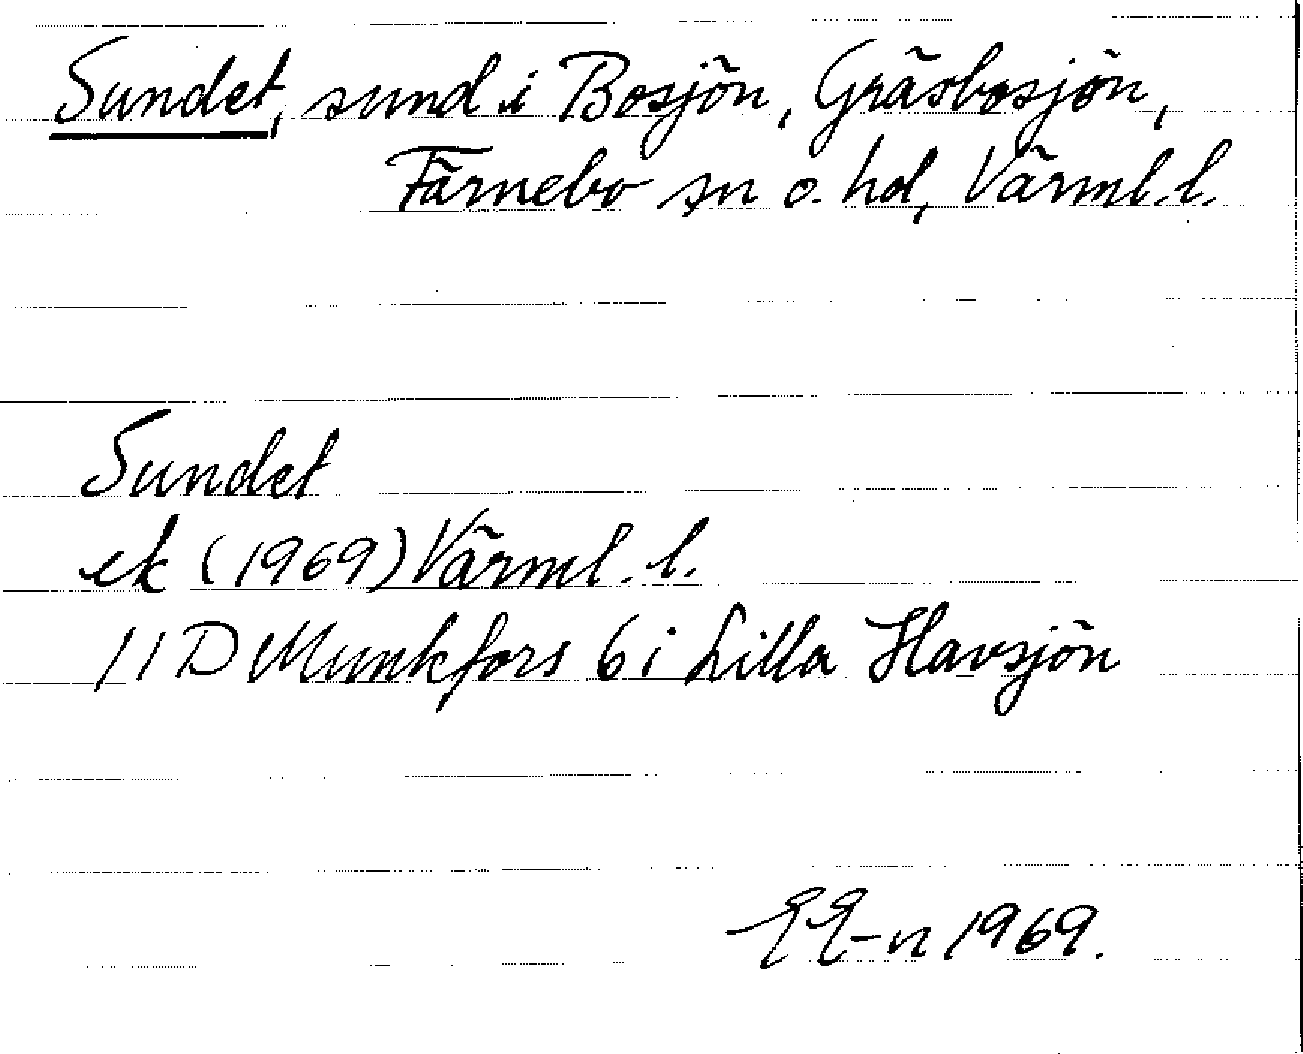 Sundet, sund i Bosjön, Gräsbosjön,
Färnebo sn o. hd, Värml. l.
Sundet
ek (1969) Värml. l.
11 D Munkfors 6 i Lilla Havsjön
EE-n 1969.